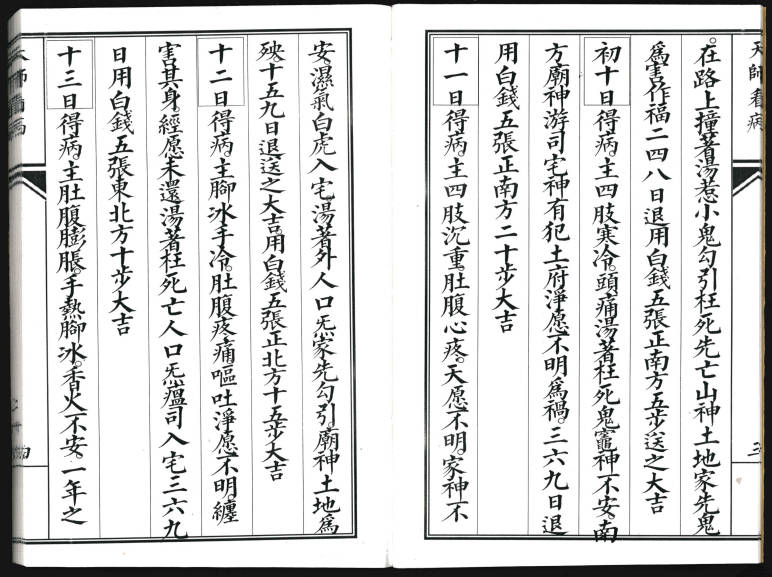 天師看病
三
在路上撞著湯惹小鬼勾引枉死先亡山神土地家先鬼
為害作福二四八日退用白錢五張正南方五步送之大吉
初十日得病主四肢寒冷頭痛湯著枉死鬼竈神不安南
方廟神游司宅神有犯土府淨愿不明為禍三六九日退
用白錢五張正南方二十步大吉
十一日得病主四肢沉重肚腹心疼天愿不明家神不
安濕氣白虎入宅湯著外人口炁家先勾引廟神土地為
殃十五九日退送之大吉用白錢五張正北方十五步大吉
十二日得病主腳冰手冷肚腹疼痛嘔吐淨愿不明纏
害其身經愿未還湯著枉死亡人口炁瘟司入宅三六九
日用白錢五張東北方十步大吉
十三日得病主肚腹膨脹手熱腳冰香火不安一年之
天師看病